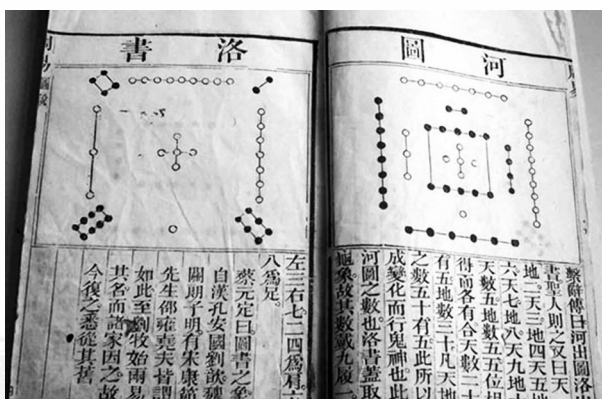 河圖
繫辭傳曰河出圖洛出
書聖人則之又曰天一
地二天三地四天五地
六天七地八天九地十
天數五地數五五位相
得而各有合天數二十
有五地數三十凡天地
之數五十有五此所以
成變化而行鬼神也此
河圖之數也洛書蓋取
龜象故其數戴九履一
洛書
左三右七二四爲肩六
八爲足
蔡元定曰圖書之象
自漢孔安國劉歆
關朗子明有宋康節
先生邵雍堯夫皆謂
如此至劉牧始兩易
其名而諸家因之故
今復之悉從其舊